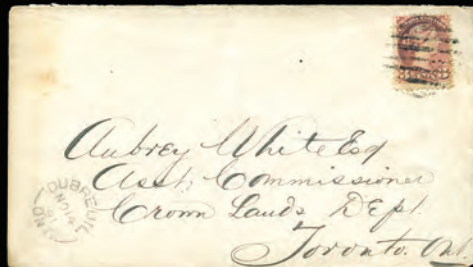 Aubrey White Esq
Asst. Commissioner
Crown Lands Dept.
Toronto. Ont.
DUBREUIL
NO 14
91
ONT